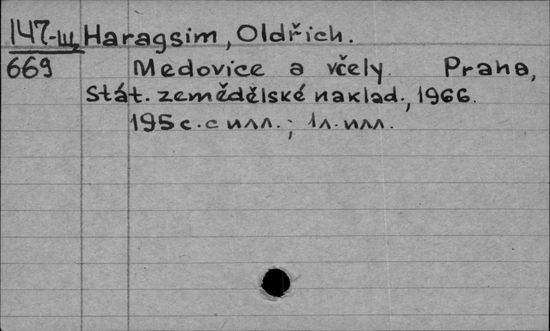 147-ш Haragsim, Oldřich.
669 Medovice a včely Praha,
Stát. zemědělské naklad., 1966.
195 с. с илл.; 1 л. илл.